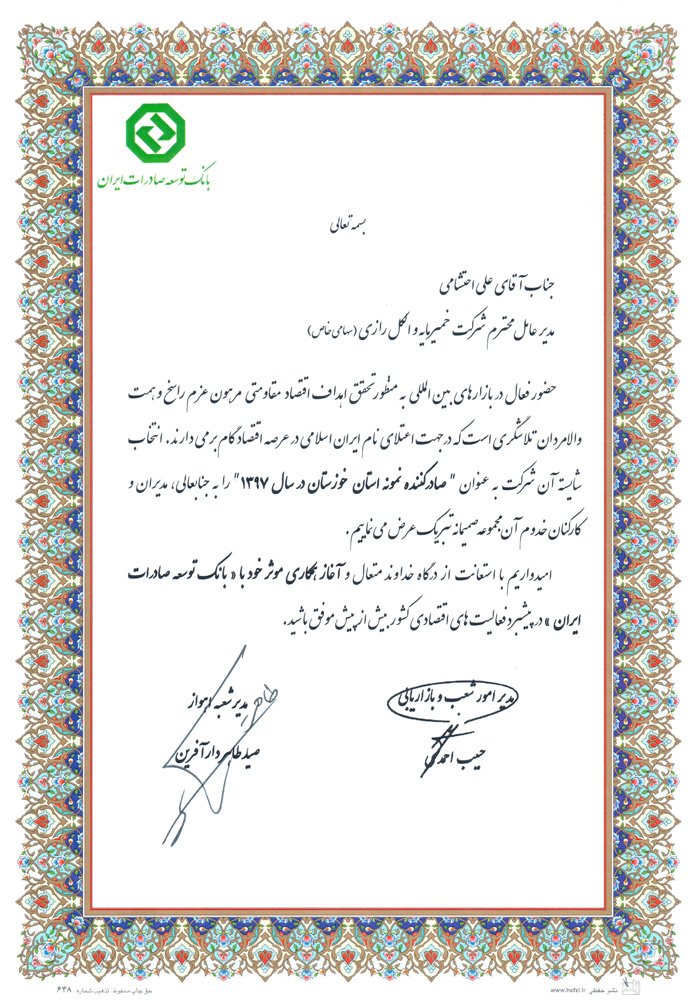 بانک توسعه صادرات ایران
بسمه تعالی
جناب آقای علی احتشامی
مدیر عامل محترم شرکت خمیرمایه و الکل رازی (سهامی خاص)
حضور فعال در بازارهای بین المللی به منظور تحقق اهداف اقتصاد مقاومتی مرهون عزم راسخ و همت
والامردان تلاشگری است که در جهت اعتلای نام ایران اسلامی در عرصه اقتصاد گام برمی دارند. انتخاب
شایسته آن شرکت به عنوان " صادرکننده نمونه استان خوزستان در سال ۱۳۹۷" را به جنابعالی، مدیران و
کارکنان خدوم آن مجموعه صمیمانه تبریک عرض می نماییم.
امیدواریم با استعانت از درگاه خداوند متعال و آغاز همکاری موثر خود با « بانک توسعه صادرات
ایران » در پیشبرد فعالیت های اقتصادی کشور بیش از پیش موفق باشید.
مدیر امور شعب و بازاریابی
حبیب احمدی
مدیر شعبه اهواز
صید طاهر دارآفرین
نشر حفظی www.hefzi.ir
حق چاپ محفوظ. تذهیب شماره: ۶۳۸